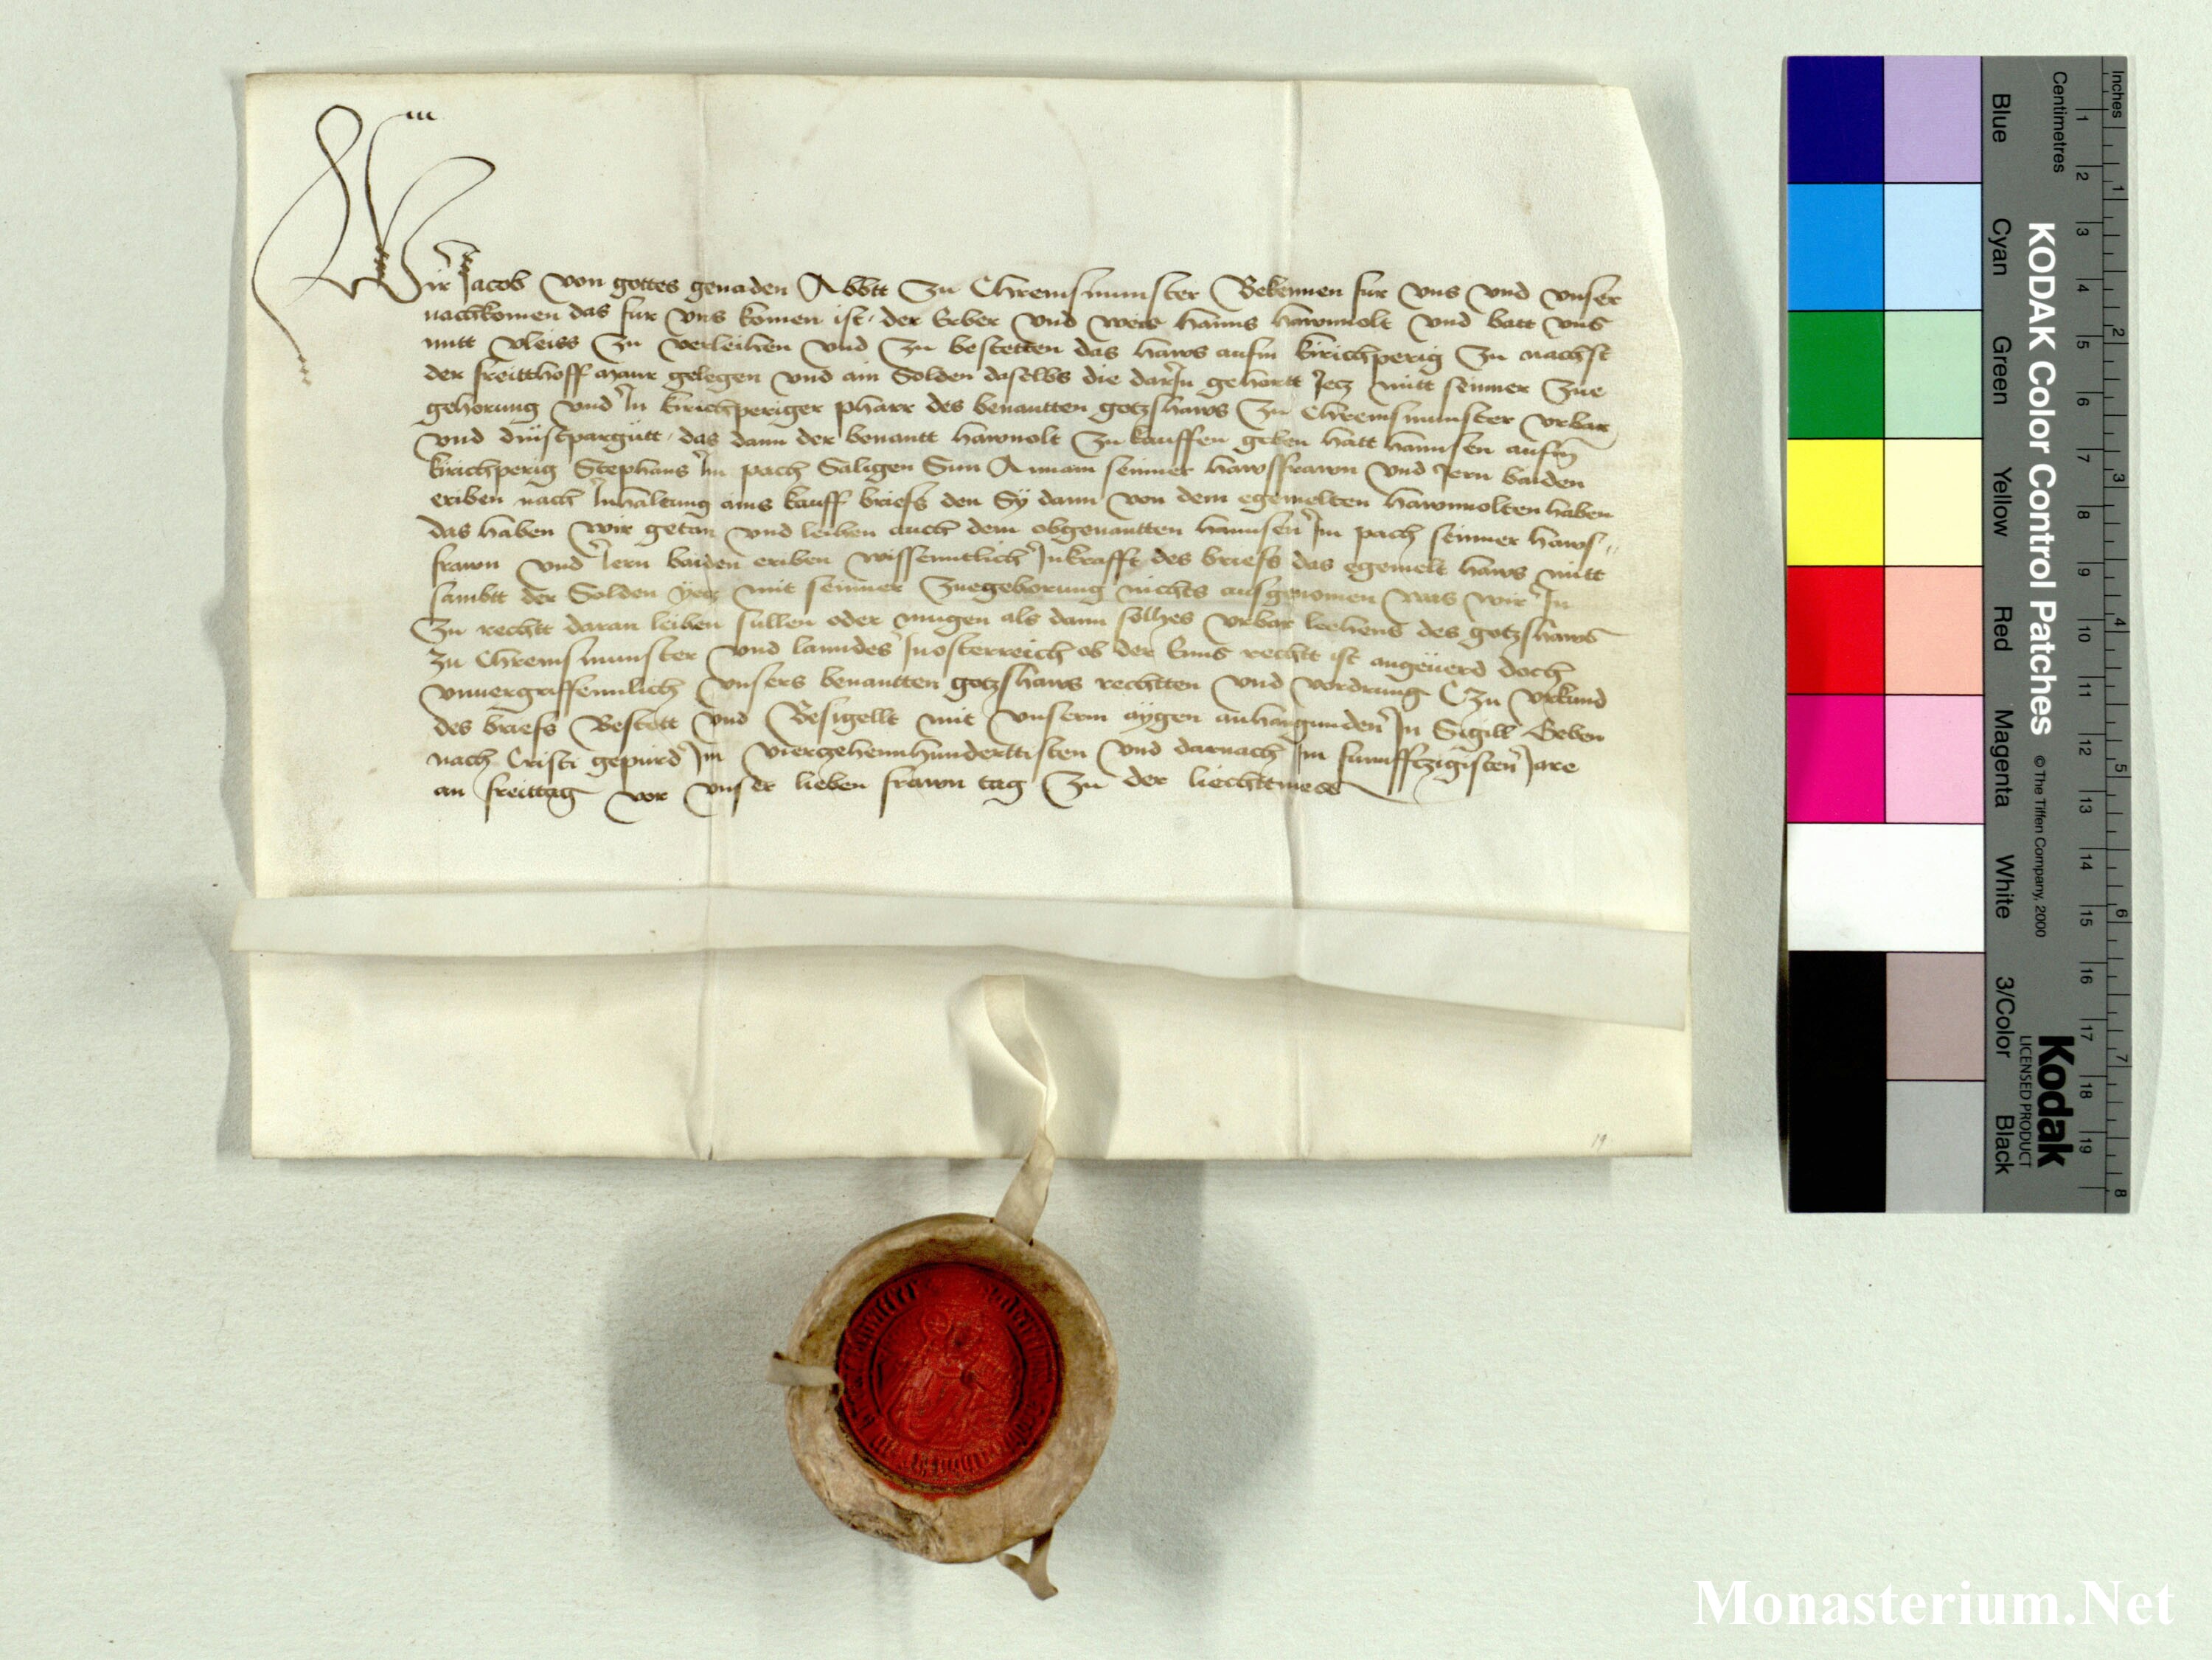 Wir Jacob von gottes genaden Abbtt Zu Chremsmunster Bekennen fur vns vnd vnser
nachkomen das fur vns komen ist der Erber vnd weis hanns hawnolt vnd batt vns
mitt vleiss Zu verleihen vnd Zu bestetten das haws aufm kirichperig Zu nachst
der freitthoff maur gelegen vnd ain Solden daselbs die darJn gehortt Jecz mitt seinner Zue
gehorung vnd Jn kirichperiger pharr des benantten gotzshaws Zu Chremsmunster vrbar
vnd dinstpargutt das dann der benantt hawnolt Zu kauffen geben hatt hannsen aufm
kirichperig Stephans Jm pach Saligen Sun Annam seinner hawsfrawn vnd Jern baiden
eriben nach Jnhaltung ains kauff briefs den Sy dann von dem egemelten hawnolten haben
das haben wir getan vnd leihen auch dem obgenantten hannsen Jm pach seinner haws
frawn vnd Jern baiden eriben wissenntlich Jnkrafft des briefs das egemelt haws mitt
sambtt der Solden yecz mit seinner Zuegehorung nichts ausgenomen was wir Jn
Zu rechtt daran leihen sullen oder mugen als dann solhes vrbar lechens des gotzshaws
Zu Chremsmunster vnd lanndes Jnosterreich ob der Enns rechtt ist angeuerd doch
vnuergriffennlich vnsers benantten gotzshaws rechtten vnd vordrung Czu vrkund
des briefs Bestett vnd Besigellt mit vnserm aygen anhangunden Jn Sigill Geben
nach Cristi gepurd Jm vierzehennhunderttisten vnd darnach Jm funffczigisten Jare
an freittag vor vnser lieben frawn tag Zu der liechttmess
19
KODAK Color Control Patches
© The Tiffen Company, 2000
Kodak
LICENSED PRODUCT
Inches
1 2 3 4 5 6 7 8
Centimetres
1 2 3 4 5 6 7 8 9 10 11 12 13 14 15 16 17 18 19
Blue
Cyan
Green
Yellow
Red
Magenta
White
3/Color
Black
Monasterium.Net